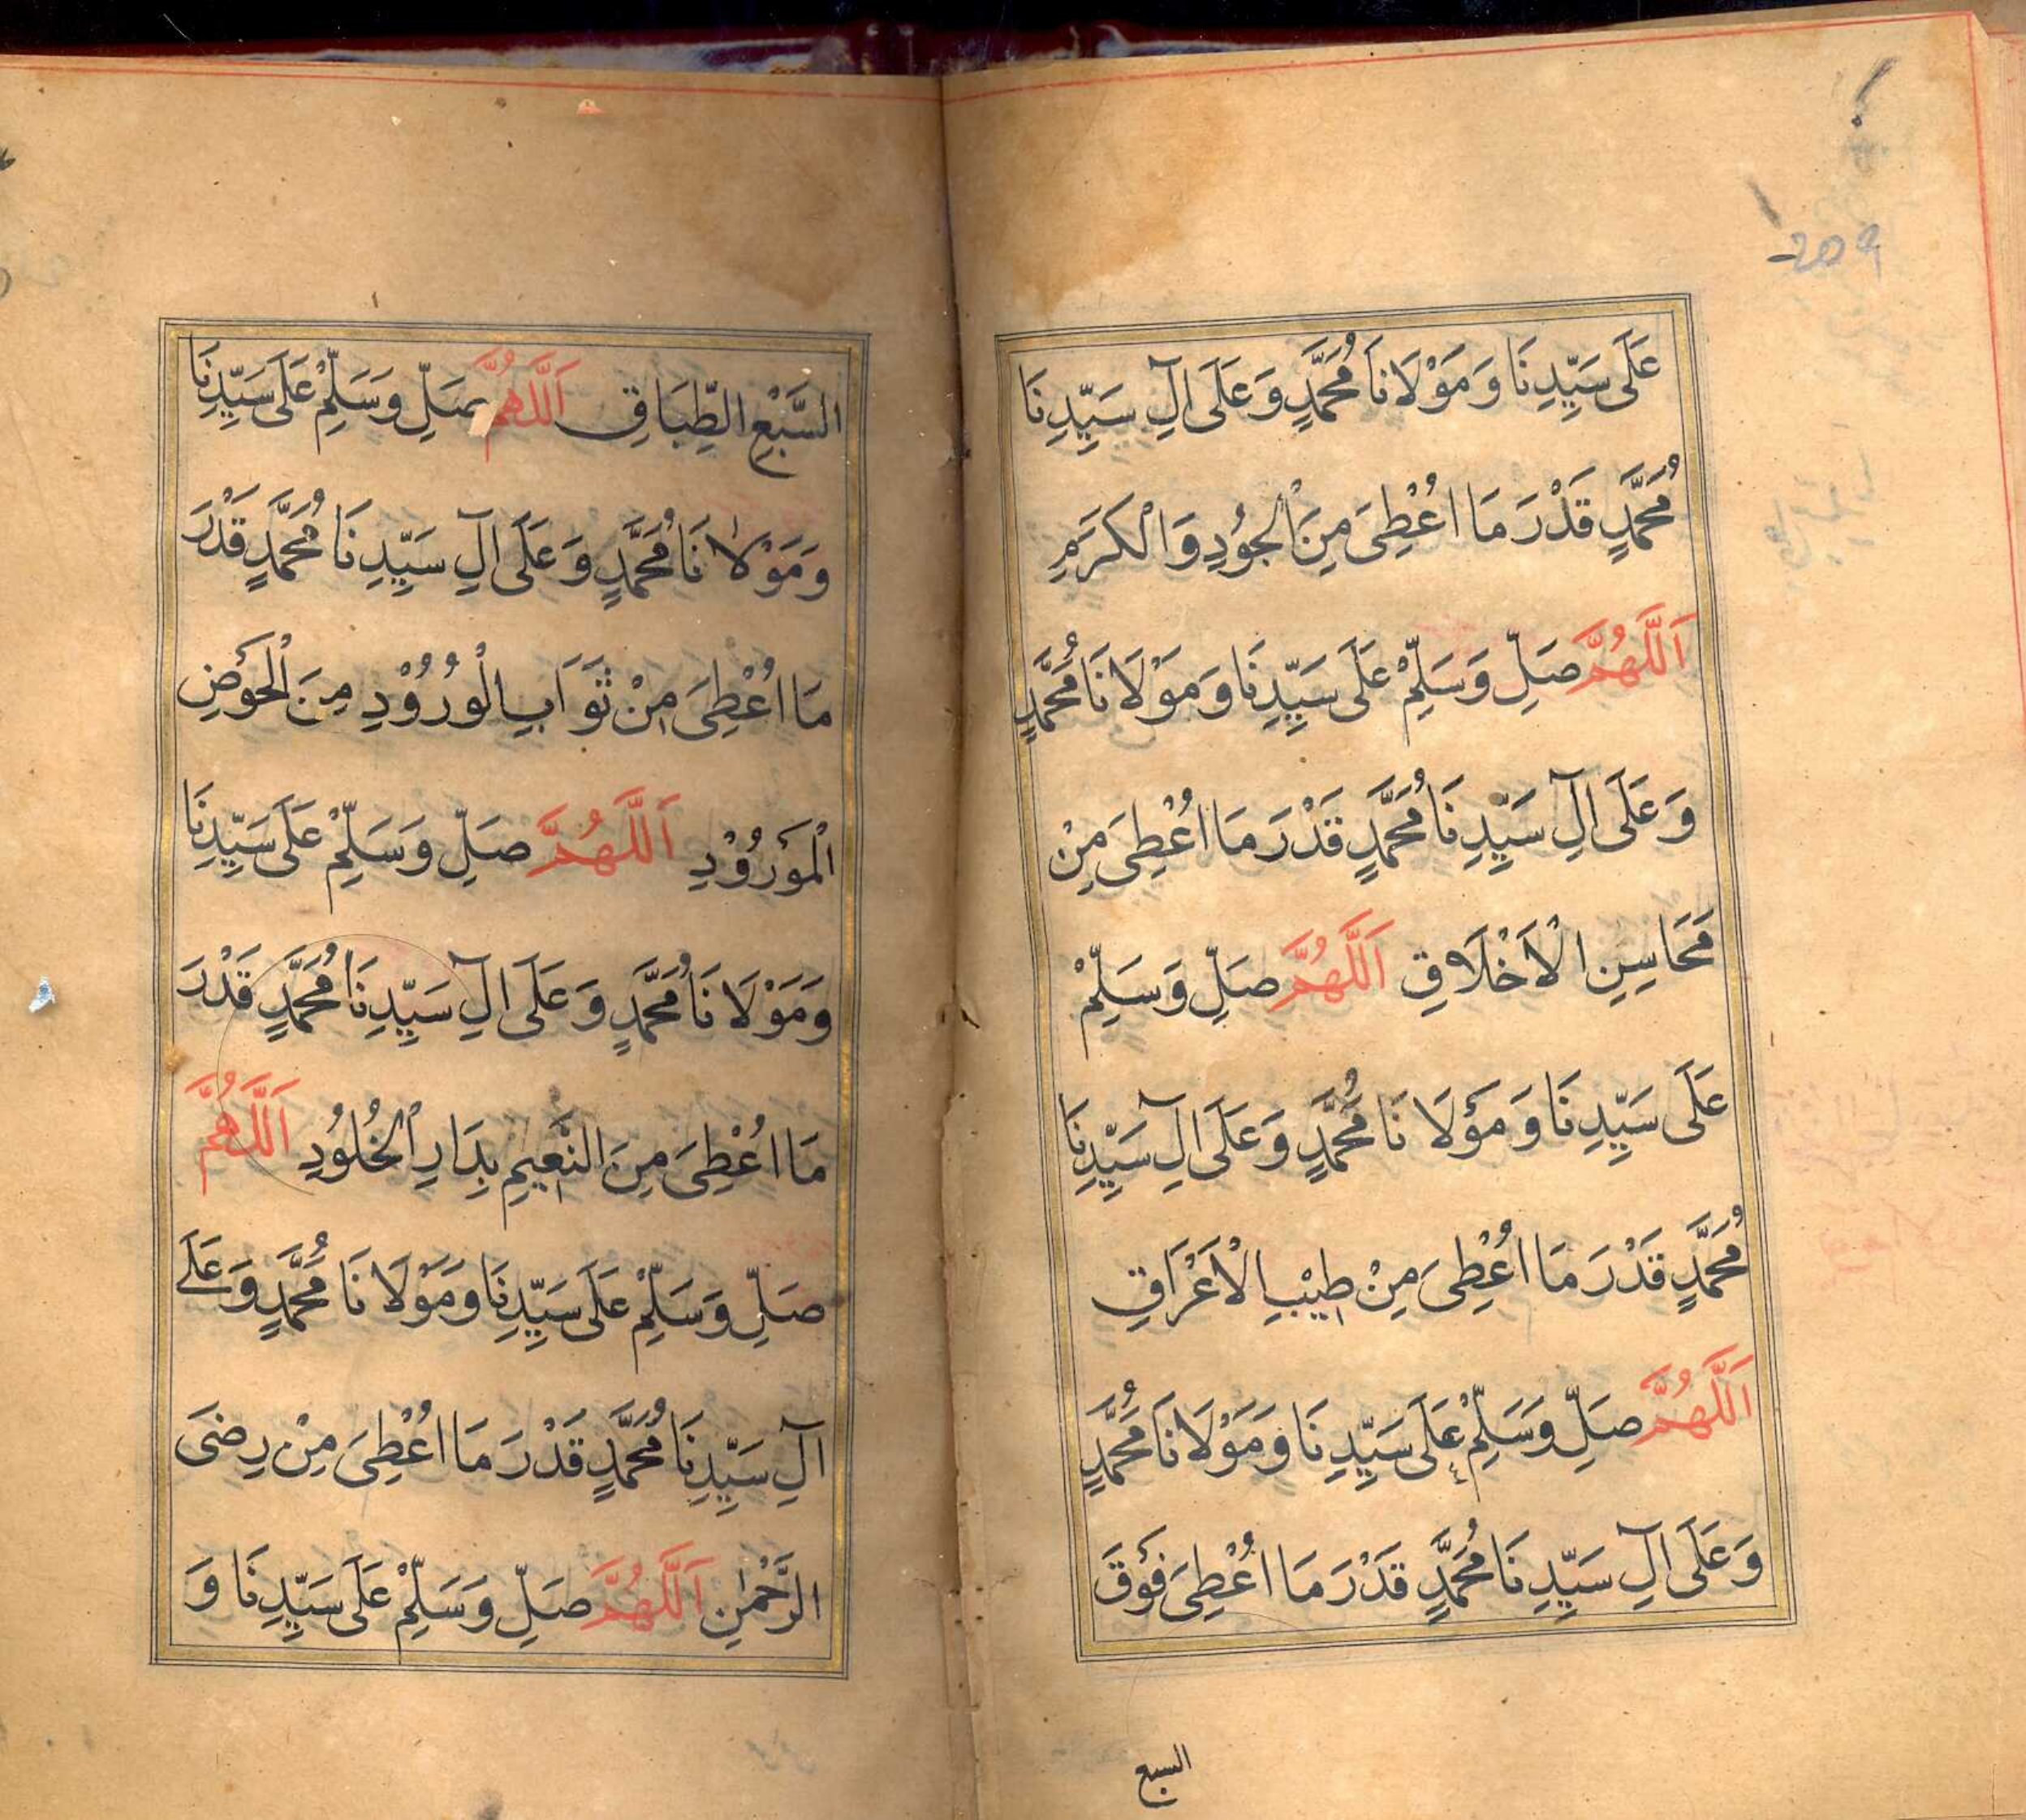 عَلَى سَيِّدِنَا وَمَوْلَانَا مُحَمَّدٍ وَعَلَى آلِ سَيِّدِنَا
مُحَمَّدٍ قَدْرَ مَا اُعْطِيَ مِنَ الْجُوْدِ وَالْكَرَمِ
اَللّٰهُمَّ صَلِّ وَسَلِّمْ عَلَى سَيِّدِنَا وَمَوْلَانَا مُحَمَّدٍ
وَعَلَى آلِ سَيِّدِنَا مُحَمَّدٍ قَدْرَ مَا اُعْطِيَ مِنْ
مَحَاسِنِ الْاَخْلَاقِ اَللّٰهُمَّ صَلِّ وَسَلِّمْ
عَلَى سَيِّدِنَا وَمَوْلَانَا مُحَمَّدٍ وَعَلَى آلِ سَيِّدِنَا
مُحَمَّدٍ قَدْرَ مَا اُعْطِيَ مِنْ طِيْبِ الْاَعْرَاقِ
اَللّٰهُمَّ صَلِّ وَسَلِّمْ عَلَى سَيِّدِنَا وَمَوْلَانَا مُحَمَّدٍ
وَعَلَى آلِ سَيِّدِنَا مُحَمَّدٍ قَدْرَ مَا اُعْطِيَ فَوْقَ
السبع
السَّبْعِ الطِّبَاقِ اَللّٰهُمَّ صَلِّ وَسَلِّمْ عَلَى سَيِّدِنَا
وَمَوْلَانَا مُحَمَّدٍ وَعَلَى آلِ سَيِّدِنَا مُحَمَّدٍ قَدْرَ
مَا اُعْطِيَ مِنْ ثَوَابِ الْوُرُوْدِ مِنَ الْحَوْضِ
الْمَوْرُوْدِ اَللّٰهُمَّ صَلِّ وَسَلِّمْ عَلَى سَيِّدِنَا
وَمَوْلَانَا مُحَمَّدٍ وَعَلَى آلِ سَيِّدِنَا مُحَمَّدٍ قَدْرَ
مَا اُعْطِيَ مِنَ النَّعِيْمِ بِدَارِ الْخُلُوْدِ اَللّٰهُمَّ
صَلِّ وَسَلِّمْ عَلَى سَيِّدِنَا وَمَوْلَانَا مُحَمَّدٍ وَعَلٰے
آلِ سَيِّدِنَا مُحَمَّدٍ قَدْرَ مَا اُعْطِيَ مِنْ رِضَى
الرَّحْمٰنِ اَللّٰهُمَّ صَلِّ وَسَلِّمْ عَلَى سَيِّدِنَا وَ